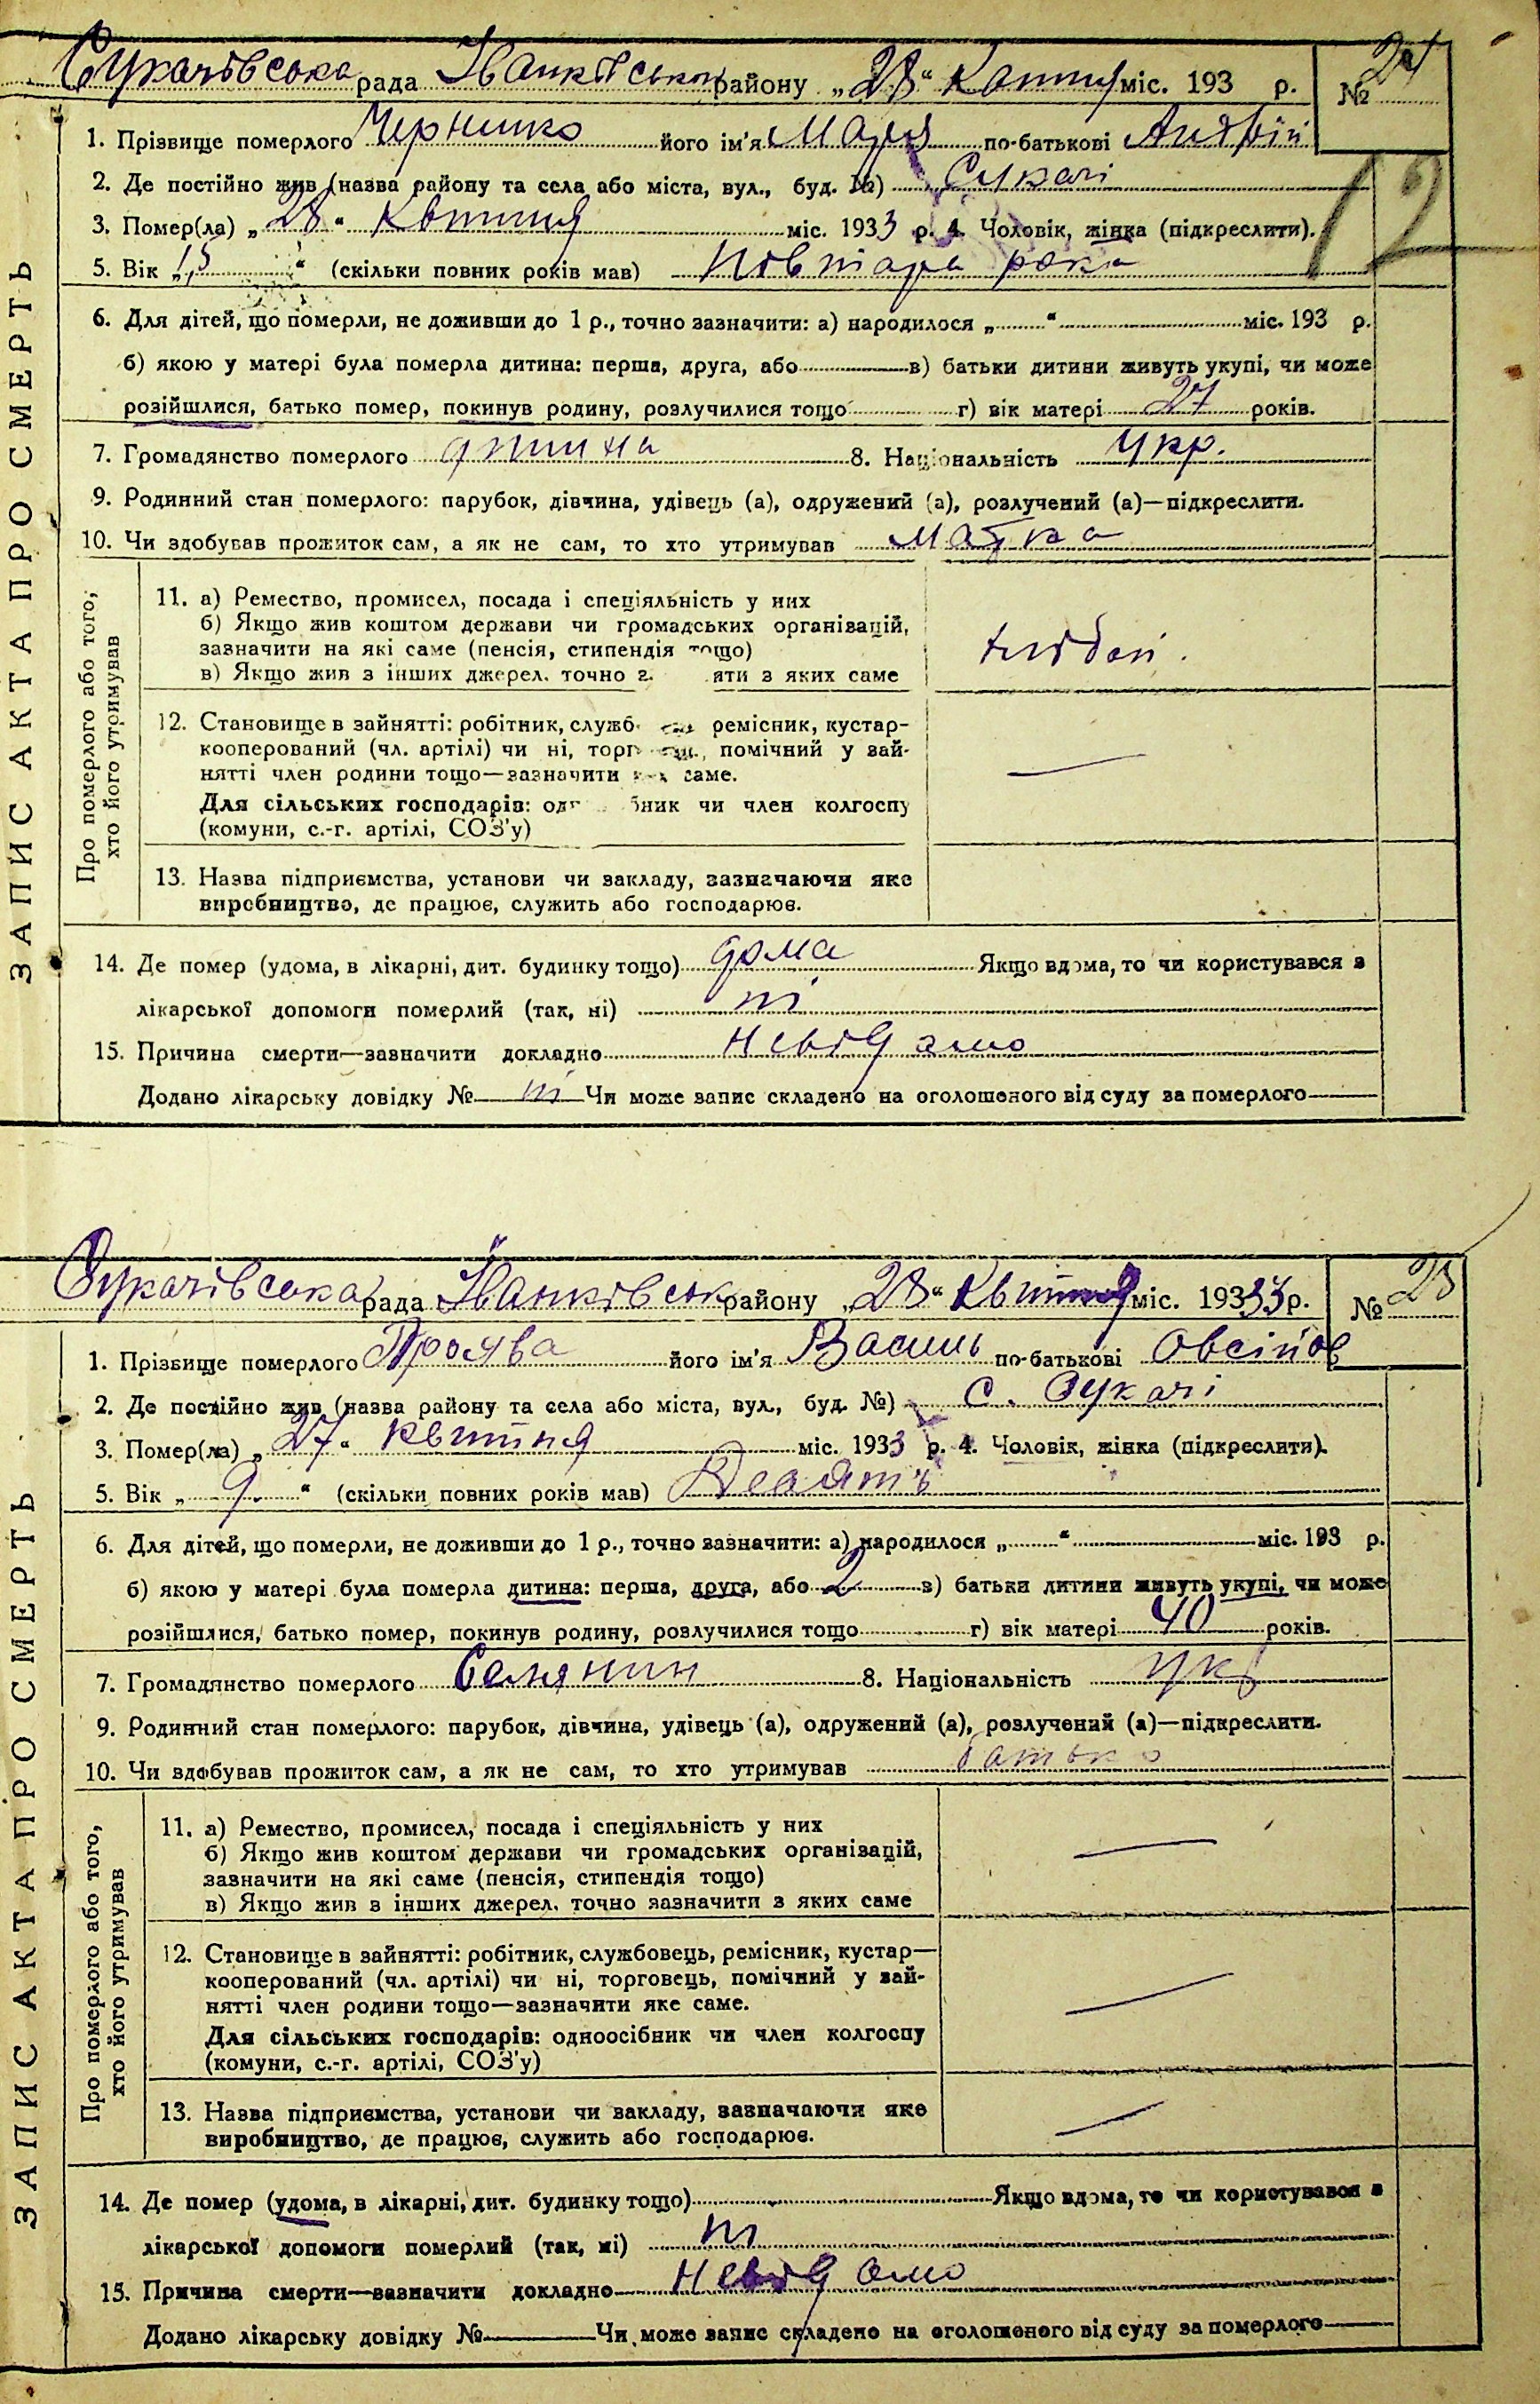 Сукачівська рада Іванківськ району „28“ Квітня міс. 193 р. № 24
12
ЗАПИС АКТА ПРО СМЕРТЬ
1. Прізвище померлого його ім'я Марія по-батькові Андрій
2. Де постійно жив (назва району та села або міста, вул., буд. №) Сукачі
3. Помер(ла) „28“ Квітня міс. 1933 р. 4. Чоловік, жінка (підкреслити).
5. Вік „1,5“ (скільки повних років мав) Півтара рока
6. Для дітей, що померли, не доживши до 1 р., точно зазначити: а) народилося „ “ міс. 193 р.
б) якою у матері була померла дитина: перша, друга, або в) батьки дитини живуть укупі, чи може
розійшлися, батько помер, покинув родину, розлучилися тощо г) вік матері 27 років.
7. Громадянство померлого дитина 8. Національність Укр.
9. Родинний стан померлого: парубок, дівчина, удівець (а), одружений (а), розлучений (а)—підкреслити.
10. Чи здобував прожиток сам, а як не сам, то хто утримував Матка
Про померлого або того, хто його утримував
11. а) Ремество, промисел, посада і спеціяльність у них
б) Якщо жив коштом держави чи громадських організацій,
зазначити на які саме (пенсія, стипендія тощо)
в) Якщо жив з інших джерел. точно з яти з яких саме
12. Становище в зайнятті: робітник, служб ремісник, кустар-
кооперований (чл. артілі) чи ні, торг помічний у зай-
нятті член родини тощо—зазначити саме.
Для сільських господарів: од бник чи член колгоспу
(комуни, с.-г. артілі, СОЗ'у)
13. Назва підприємства, установи чи закладу, зазначаючи яке
виробництво, де працює, служить або господарює.
14. Де помер (удома, в лікарні, дит. будинку тощо) дома Якщо вдома, то чи користувався з
лікарської допомоги померлий (так, ні) ні
15. Причина смерти—зазначити докладно невідамо
Додано лікарську довідку № ні Чи може запис складено на оголошеного від суду за померлого
Сукачівська рада Іванківськ району „28“ Квітня міс. 19333 р. № 25
ЗАПИС АКТА ПРО СМЕРТЬ
1. Прізвище померлого Проява його ім'я Василь по-батькові Овсійов
2. Де постійно жив (назва району та села або міста, вул., буд. №) с. Сукачі
3. Помер(ла) „27“ квітня міс. 1933 р. 4. Чоловік, жінка (підкреслити).
5. Вік „9.“ (скільки повних років мав) Девять
6. Для дітей, що померли, не доживши до 1 р., точно зазначити: а) народилося „ “ міс. 193 р.
б) якою у матері була померла дитина: перша, друга, або 2 в) батьки дитини живуть укупі, чи може
розійшлися, батько помер, покинув родину, розлучилися тощо г) вік матері 40 років.
7. Громадянство померлого Селянин 8. Національність укр
9. Родинний стан померлого: парубок, дівчина, удівець (а), одружений (а), розлучений (а)—підкреслити.
10. Чи здобував прожиток сам, а як не сам, то хто утримував батько
Про померлого або того, хто його утримував
11. а) Ремество, промисел, посада і спеціяльність у них
б) Якщо жив коштом держави чи громадських організацій,
зазначити на які саме (пенсія, стипендія тощо)
в) Якщо жив з інших джерел. точно зазначити з яких саме
12. Становище в зайнятті: робітник, службовець, ремісник, кустар—
кооперований (чл. артілі) чи ні, торговець, помічний у зай-
нятті член родини тощо—зазначити яке саме.
Для сільських господарів: одноосібник чи член колгоспу
(комуни, с.-г. артілі, СОЗ'у)
13. Назва підприємства, установи чи закладу, зазначаючи яке
виробництво, де працює, служить або господарює.
14. Де помер (удома, в лікарні, дит. будинку тощо) Якщо вдома, то чи користувався з
лікарської допомоги померлий (так, ні) ні
15. Причина смерти—зазначити докладно невідомо
Додано лікарську довідку № Чи може запис складено на оголошеного від суду за померлого